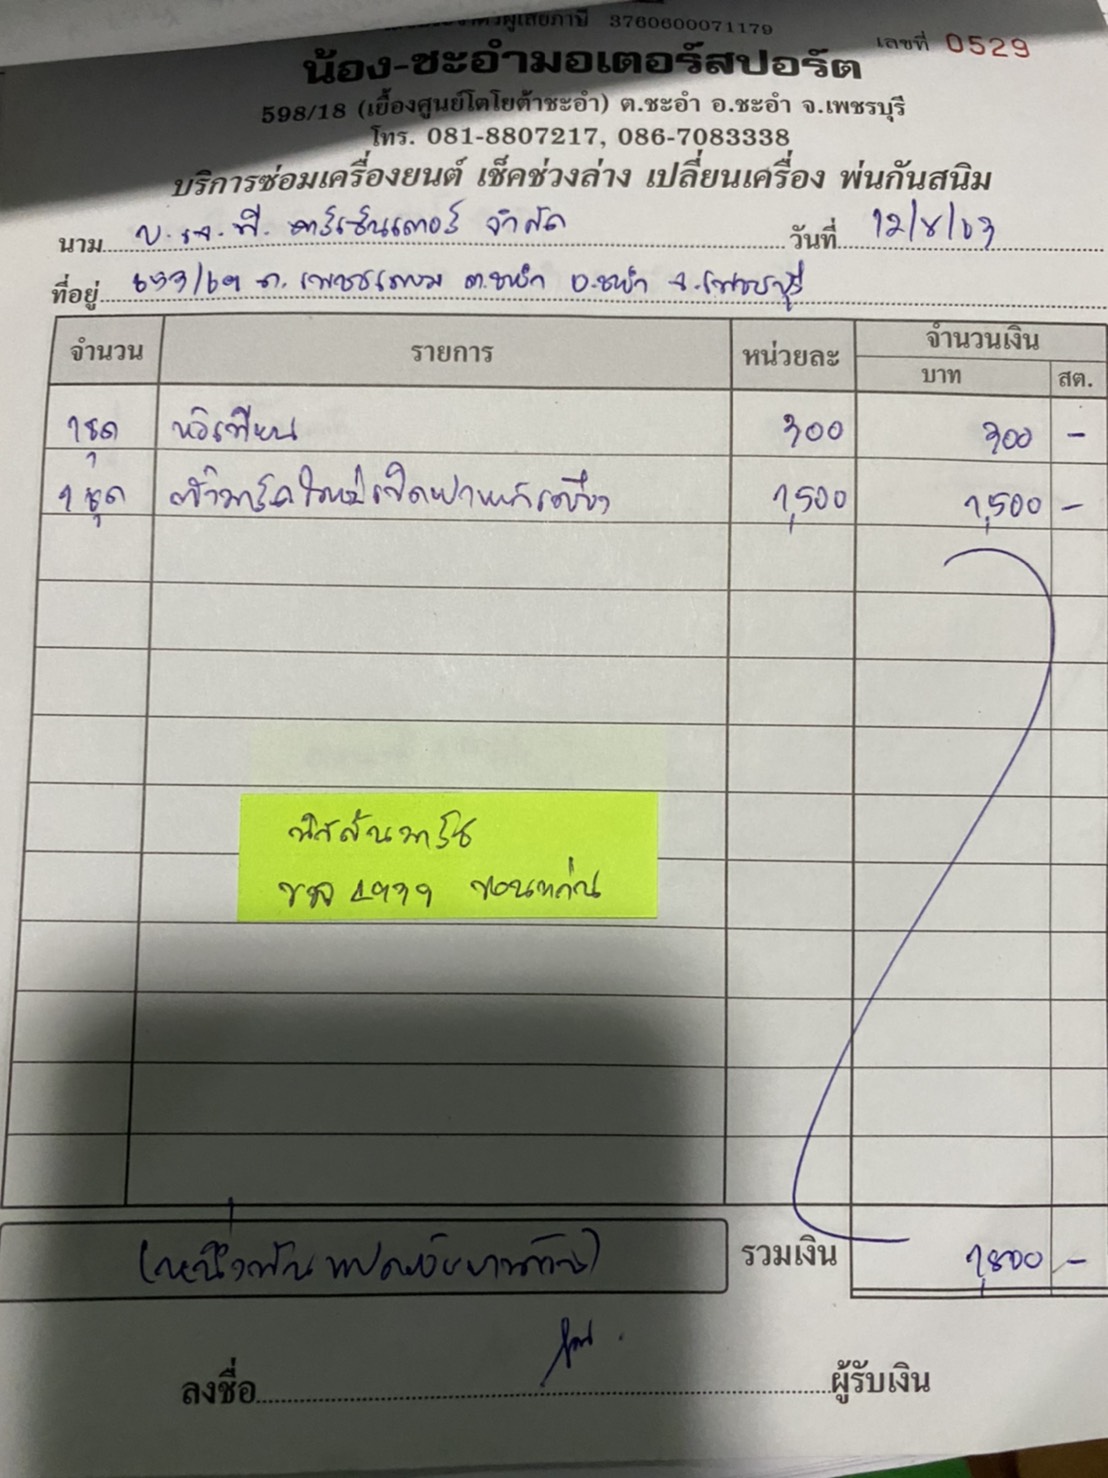 ผู้เสียภาษี 3760600071179
เลขที่ 0529
น้อง-ชะอำมอเตอร์สปอร์ต
598/18 (เยื้องศูนย์โตโยต้าชะอำ) ต.ชะอำ อ.ชะอำ จ.เพชรบุรี
โทร. 081-8807217, 086-7083338
บริการซ่อมเครื่องยนต์ เช็คช่วงล่าง เปลี่ยนเครื่อง พ่นกันสนิม
นาม บ. เจ.พี. คาร์เซ็นเตอร์ จำกัด วันที่ 12/8/63
ที่อยู่ ถ. เพชรเกษม ต.ชะอำ อ.ชะอำ จ.เพชรบุรี
จำนวน รายการ หน่วยละ จำนวนเงิน
บาท สต.
1 ชุด หัวเทียน 300 300 -
1 ชุด 1,500 1,500 -
นิสสันมาร์ช
ขอนแก่น
(หนึ่งพันแปดร้อยบาทถ้วน) รวมเงิน 1,800 -
ลงชื่อ ผู้รับเงิน